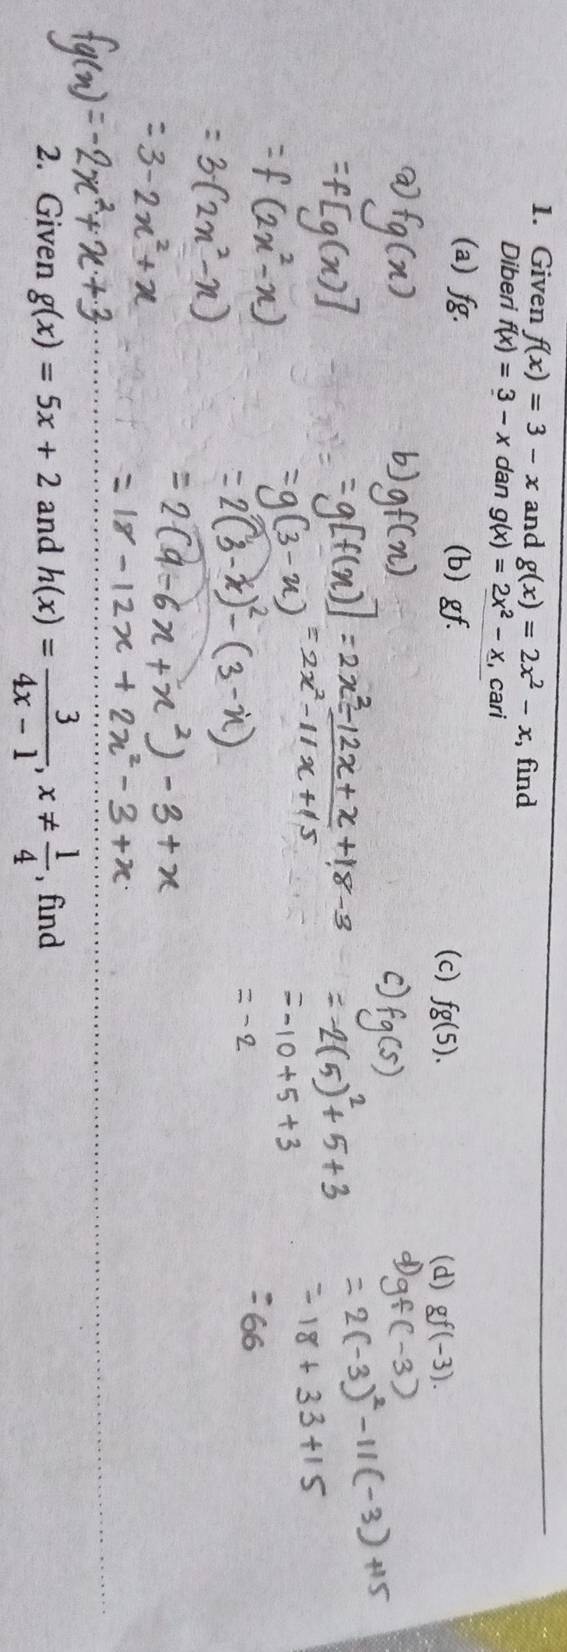 1. Given f(x) = 3 − x and g(x) = 2x² − x, find
Diberi f(x) = 3 − x dan g(x) = 2x² − x, cari
(a) fg.
(b) gf.
(c) fg(5).
(d) gf(−3).
a) fg(x)
= f[g(x)]
= f(2x² - x)
= 3-(2x² - x)
= 3 - 2x² + x
fg(x) = -2x² + x + 3
b) gf(x)
= g[f(x)]
= g(3 - x)
= 2(3 - x)² - (3 - x)
= 2(9 - 6x + x²) - 3 + x
= 18 - 12x + 2x² - 3 + x
= 2x² - 12x + x + 18 - 3
= 2x² - 11x + 15
c) fg(5)
= -2(5)² + 5 + 3
= -10 + 5 + 3
= -2
d) gf(-3)
= 2(-3)² - 11(-3) + 15
= 18 + 33 + 15
= 66
2. Given g(x) = 5x + 2 and h(x) = 3/(4x − 1), x ≠ 1/4, find